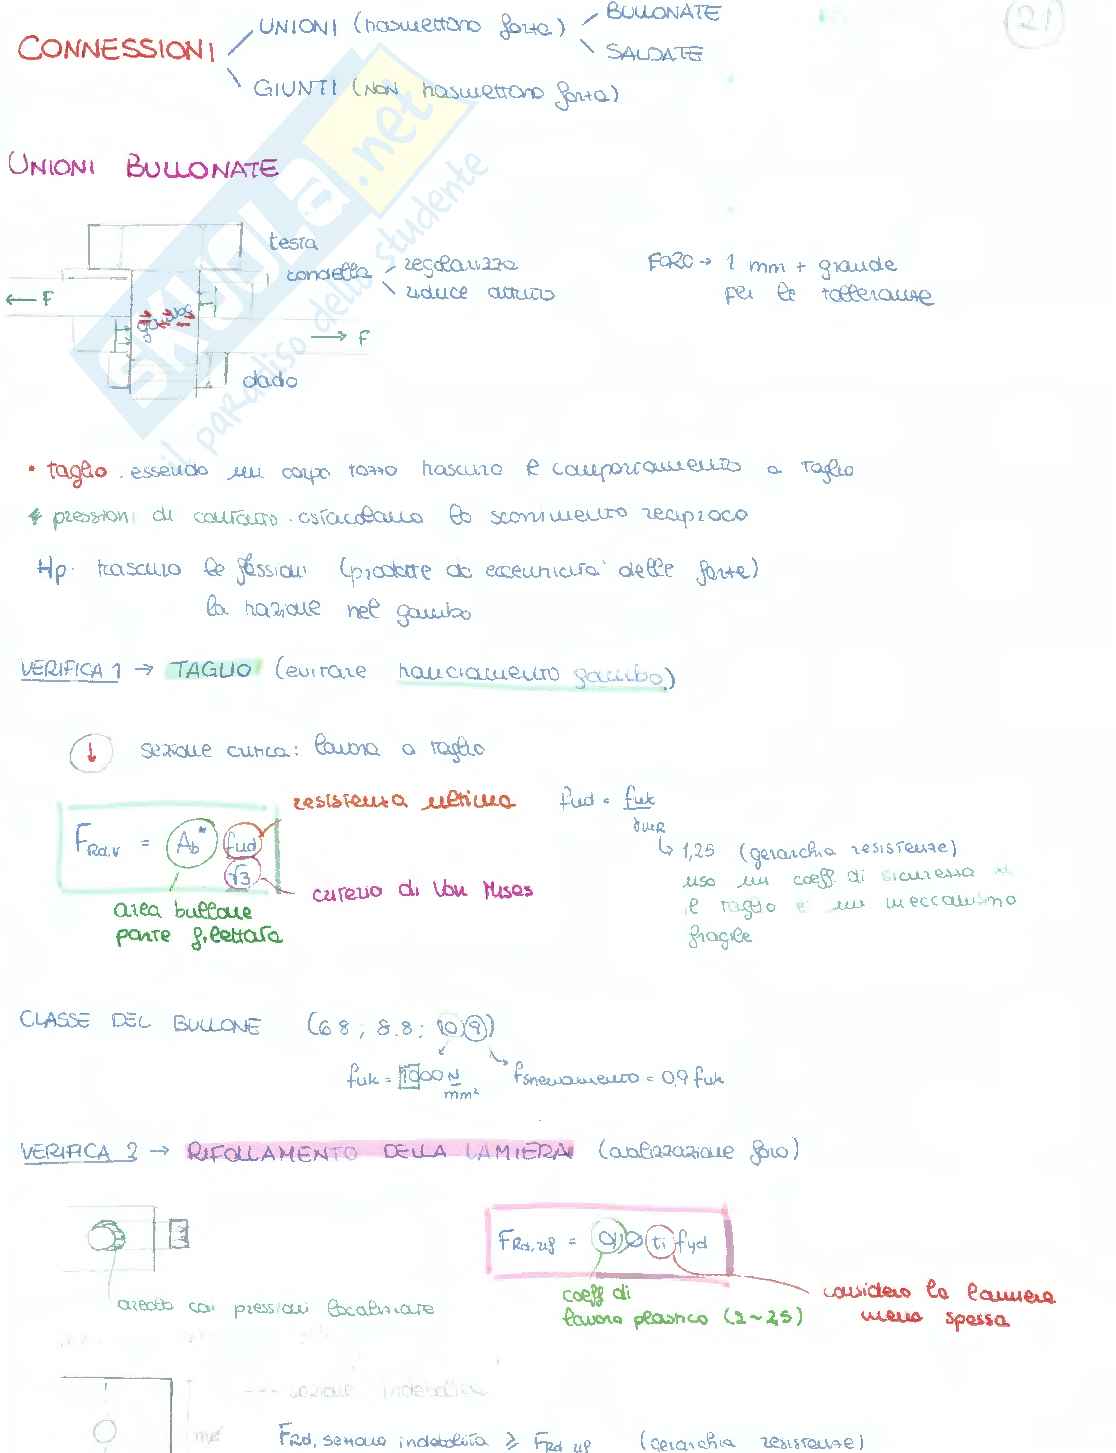 21
CONNESSIONI
UNIONI (trasmettono forza)
BULLONATE
SALDATE
GIUNTI (NON trasmettono forza)
UNIONI BULLONATE
testa
rondella
regolarizza
riduce attrito
F
gambo
F
dado
FORO → 1 mm + grande
per le tolleranze
• taglio. essendo un corpo tozzo trascuro il comportamento a taglio
pressioni di contatto. ostacolano lo scorrimento reciproco
Hp. trascuro le flessioni (prodotte da eccentricità delle forze)
la trazione nel gambo
VERIFICA 1 → TAGLIO (evitare tranciamento gambo)
↓ sezione critica: lavora a taglio
resistenza ultima
fud = fuk
γMR
F Rd,v = Ab* fud
√3
criterio di Von Mises
area bullone
parte filettata
↳ 1,25 (gerarchia resistenze)
uso un coeff. di sicurezza
il taglio è un meccanismo
fragile
CLASSE DEL BULLONE (6.8; 8.8; 10.9)
fuk = 1000 N
mm²
fsnervamento = 0,9 fuk
VERIFICA 2 → RIFOLLAMENTO DELLA LAMIERA (ovalizzazione foro)
F Rd,rif = α ∅ ti fyd
archetto con pressioni localizzate
coeff di
lavoro plastico (2~2,5)
considero la lamiera
meno spessa
--- sezione indebolita
F Rd, sezione indebolita ≥ F Rd rif (gerarchia resistenze)
SKUOLA.net
il paradiso dello studente